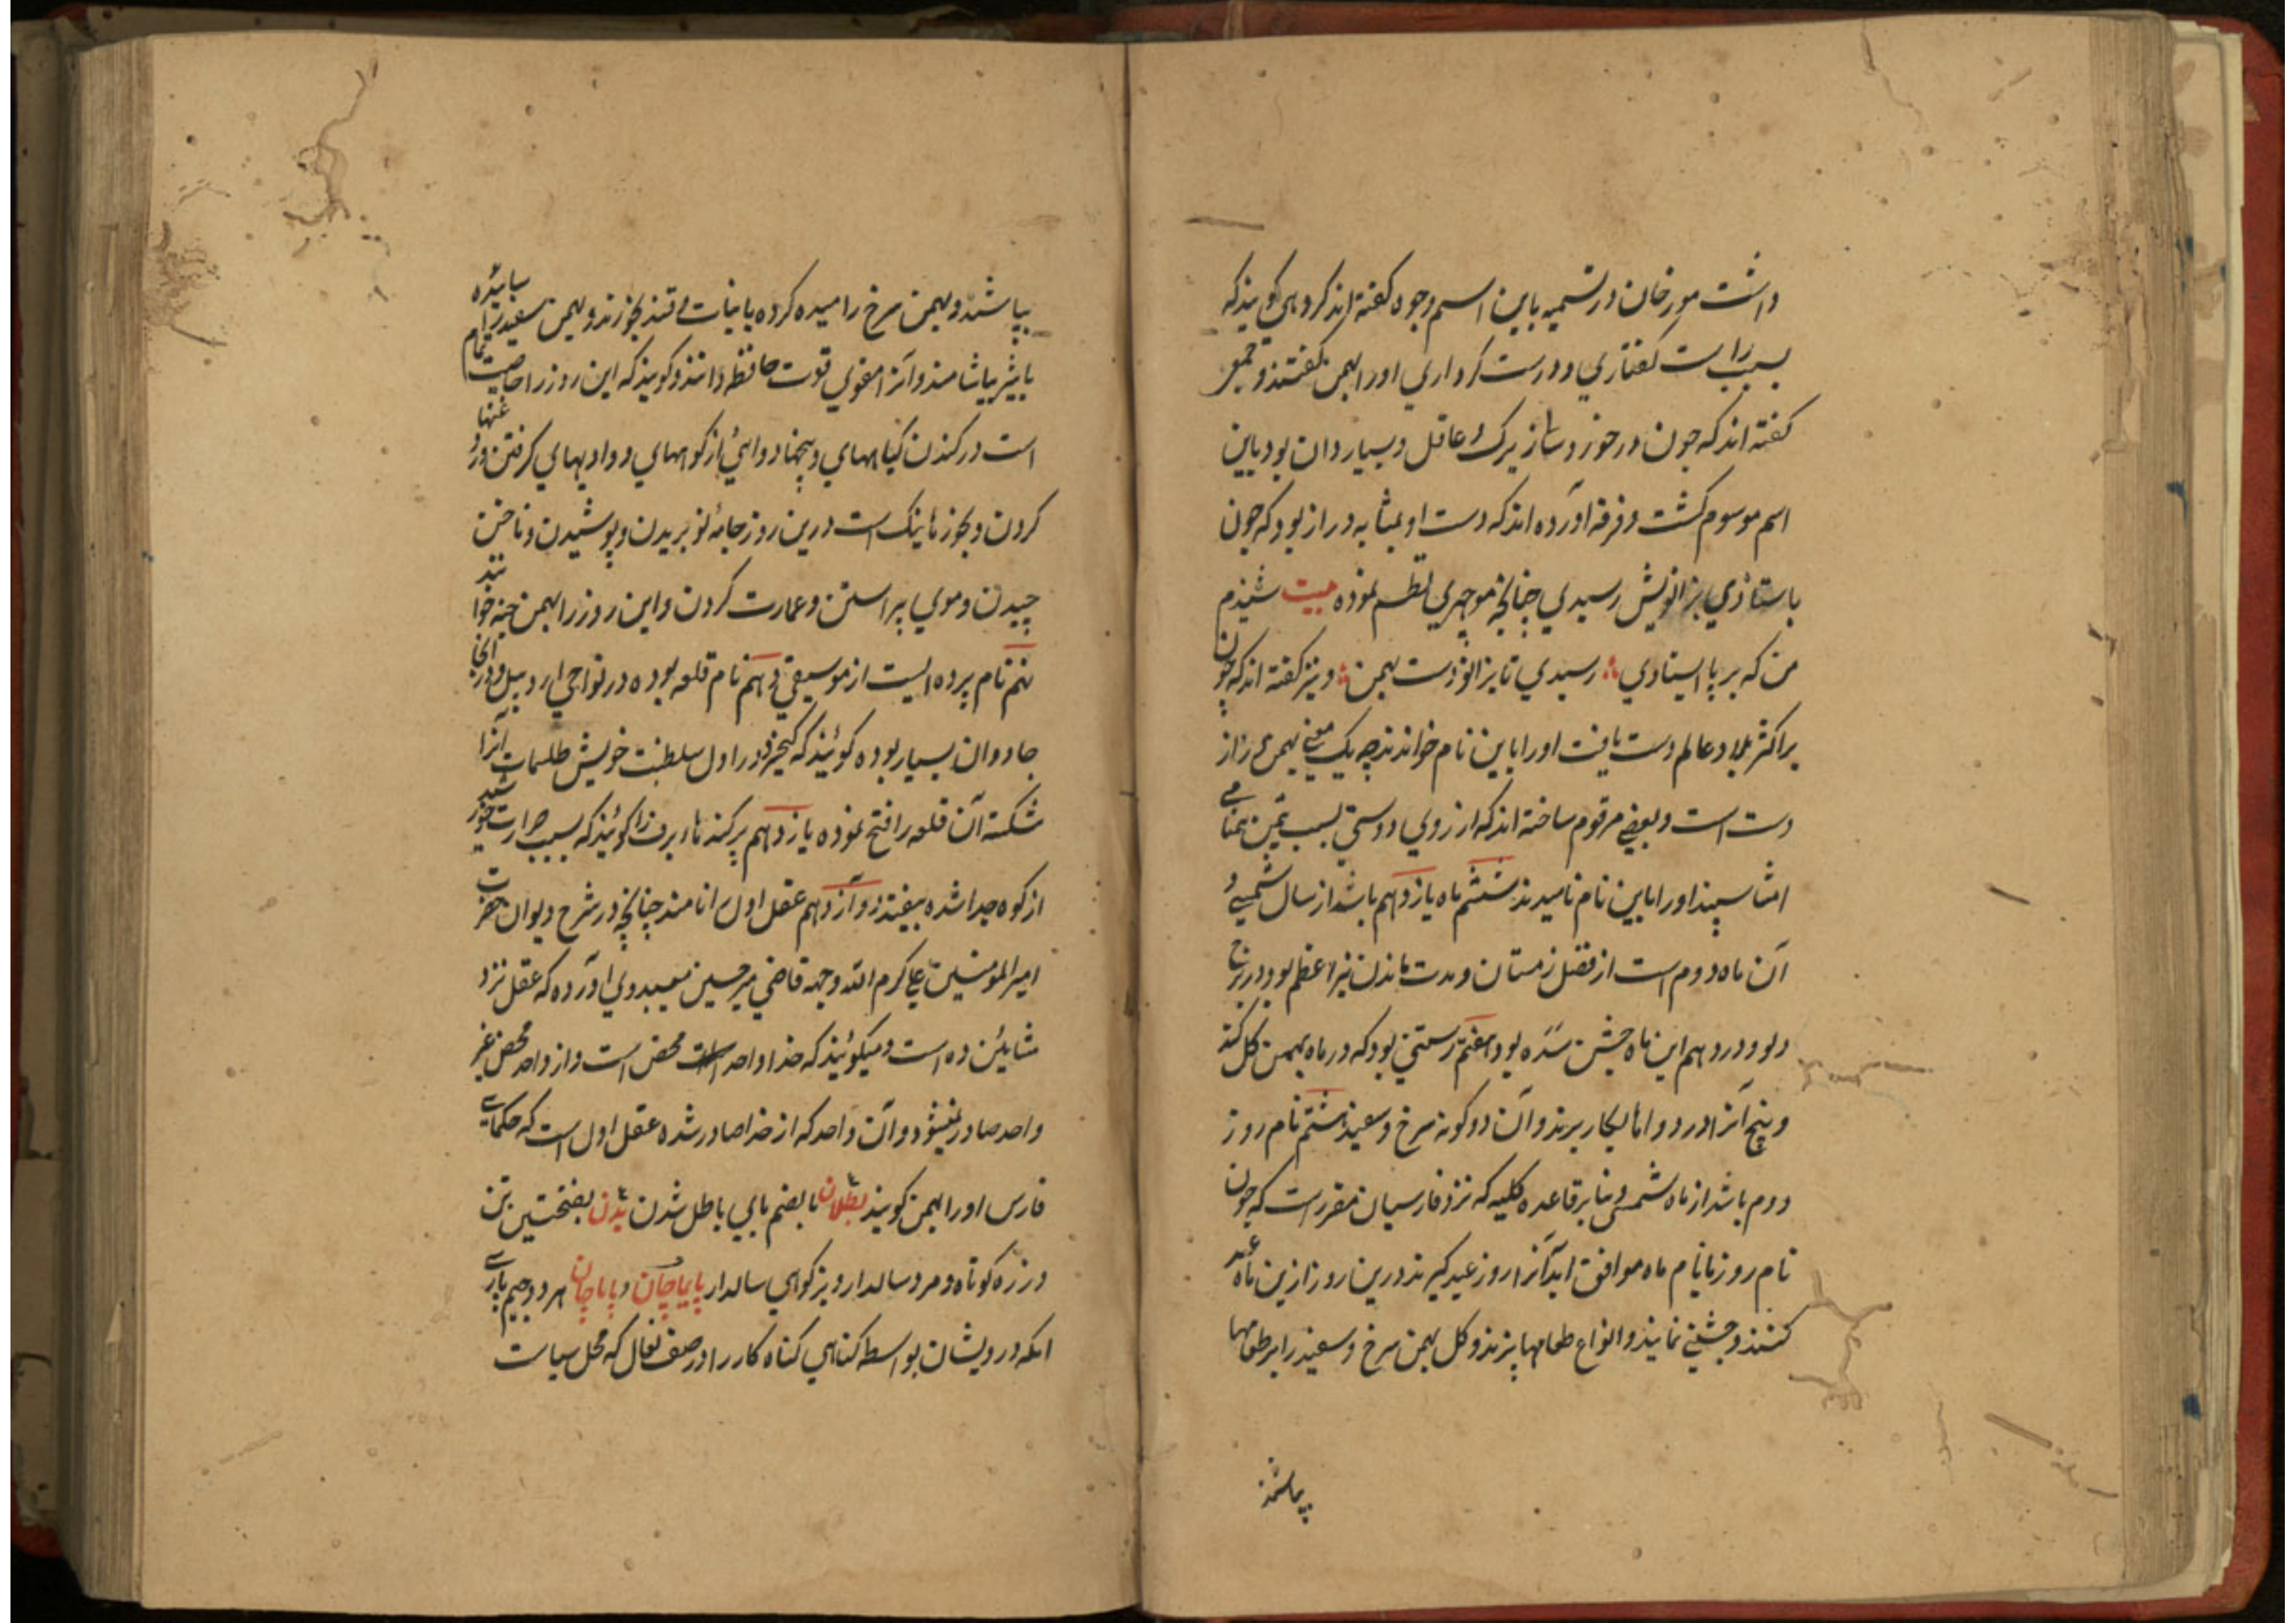 داشت مورخان در تسمیه باین اسم وجوه کفته اند کروهی کویند که
بسبب راست کفتاری و درست کرداری اورا بهمن کفتند و جمعی
کفته اند که چون در خوردسالی زیرک و عاقل و بسیار دان بود باین
اسم موسوم کشت و فرقه آورده اند که دست او بمثابه دراز بود که چون
باستادی بزانویش رسیدی چنانچه منوچهری نظم نموده بیت شنیدم
من که بر پا ایستادی رسیدی تا بزانو دست بهمن و نیز کفته اند که چون
بر اکثر بلاد عالم دست یافت اورا باین نام خواندند چه یک معنی بهمن دراز
دست است و بعضی مرقوم ساخته اند که از روی دوستی بسبب تیمن بهمنامی
امشاسپند اورا باین نام نامیدند ششم ماه یازدهم باشد از سال شمسی و
آن ماه دوم است از فصل زمستان و مدت ماندن نیر اعظم بود در برج
دلو و در دهم این ماه جشن سده بود هفتم رستنی بود که در ماه بهمن کل کند
و بیخ آنرا در دواها بکار برند و آن دو کونه سرخ و سفید هشتم نام روز
دوم باشد از ماه شمسی و بنابر قاعده کلیه که نزد فارسیان مقررست که چون
نام روز با نام ماه موافق اید آنرا روز عید کیرند درین روز ازین ماه عید
کنند و جشنی نمایند و انواع طعامها پزند و کل بهمن سرخ و سفید را بر طعامها
پباشند
بپاشند و بهمن سرخ را میده کرده با نبات و قند بخورند و بهمن سفید را سائیده
با شیر بیاشامند و آنرا مقوی قوت حافظه دانند و کویند که این روز را خاصیت تمام
است در کندن کیاههای و بیخها دوائی از کوههای و وادیهای کرفتن روغنها
کردن و بخورها نیک است درین روز جامه نو بریدن و پوشیدن و ناخن
چیدن و موی پیراستن و عمارت کردن و این روز را بهمنجنه خوانند
نهم نام پرده ایست از موسیقی دهم نام قلعه بوده در نواحی اردبیل و در آنجا
جادوان بسیار بوده کوئیند که کیخسرو در اول سلطنت خویش طلسمات آنرا
شکسته آن قلعه را فتح نموده یازدهم پرکنده برف را کوئیند که بسبب حرارت خورشید
از کوه جدا شده بیفتد دوازدهم عقل اول را نامند چنانچه در شرح دیوان حضرت
امیرالمومنین علی کرم الله وجهه قاضی میر حسین میبدی آورده که عقل نزد
مشائین ده است و میکوئیند که خدا واحد محض است و از واحد محض غیر
واحد صادر نمیشود و آن واحد که از خدا صادر شده عقل اول است که حکمای
فارس اورا بهمن کویند بطلان با بضم بای باطل شدن بدن بفتحتین تن
و زره کوتاه و مرد سالدار و بز کوهی سالدار پایپاچان و پاپاچان هر دو جیم پارسی
انکه درویشان بواسطه کناهی کناه کار را در صف نعال که محل سیاست